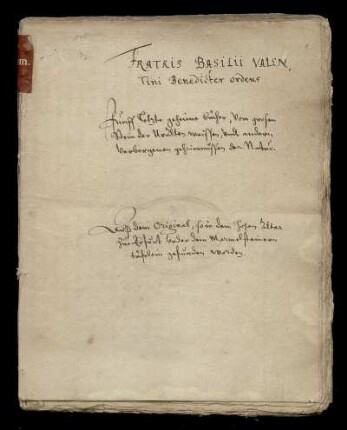 m.
FRATRIS BASILII VALEN
Tini Benedicter ordens
Fünff Letzte geheime bücher, Von grosen
Stein der Uralten weissen, und andern
verborgenen geheimnüssen der Natur.
Auß dem Original, so in dem hohen Altar
zu Erfurt under dem Marmelsteinern
täfelein gefunden worden